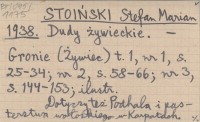 STOIŃSKI Stefan Marian
1938. Dudy żywieckie. –
Gronie (Żywiec) t. 1, nr 1, s.
25-34; nr 2, s. 58-66; nr 3,
s. 144-153; ilustr.
Dotyczy też Podhala i pas-
terstwa wołoskiego w Karpatach.